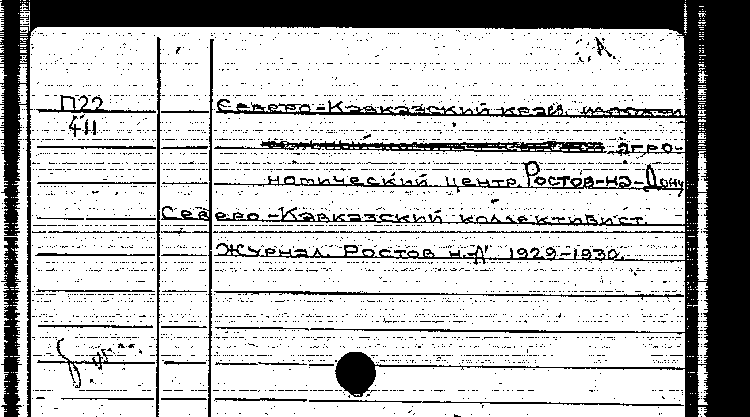 П22
411
Северо-Кавказский край.
агро-
номический центр. Ростов-на-Дону
Северо-Кавказский коллективист.
Журнал. Ростов н-Д. 1929-1930.